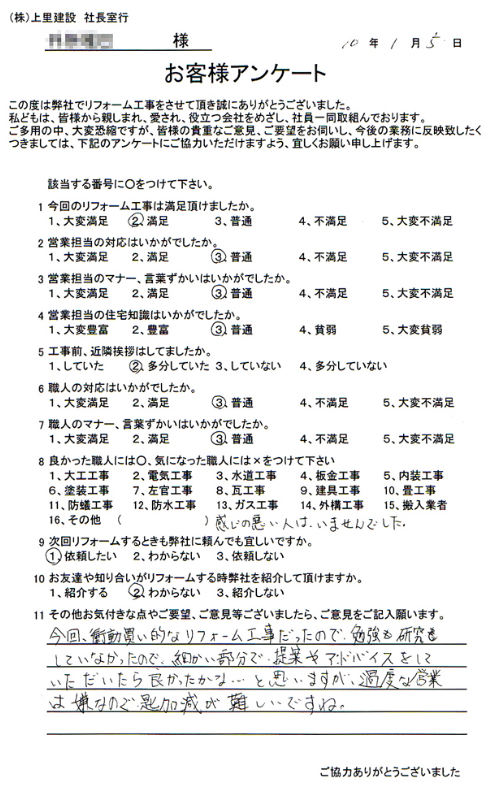 (株)上里建設 社長室行
様
10 年 1 月 5 日
お客様アンケート
この度は弊社でリフォーム工事をさせて頂き誠にありがとうございました。
私どもは、皆様から親しまれ、愛され、役立つ会社をめざし、社員一同取組んでおります。
ご多用の中、大変恐縮ですが、皆様の貴重なご意見、ご要望をお伺いし、今後の業務に反映致したく
つきましては、下記のアンケートにご協力いただけますよう、宜しくお願い申し上げます。
該当する番号に〇をつけて下さい。
1 今回のリフォーム工事は満足頂けましたか。
1、大変満足 2、満足 3、普通 4、不満足 5、大変不満足
2 営業担当の対応はいかがでしたか。
1、大変満足 2、満足 3、普通 4、不満足 5、大変不満足
3 営業担当のマナー、言葉ずかいはいかがでしたか。
1、大変満足 2、満足 3、普通 4、不満足 5、大変不満足
4 営業担当の住宅知識はいかがでしたか。
1、大変豊富 2、豊富 3、普通 4、貧弱 5、大変貧弱
5 工事前、近隣挨拶はしてましたか。
1、していた 2、多分していた 3、していない 4、多分していない
6 職人の対応はいかがでしたか。
1、大変満足 2、満足 3、普通 4、不満足 5、大変不満足
7 職人のマナー、言葉ずかいはいかがでしたか。
1、大変満足 2、満足 3、普通 4、不満足 5、大変不満足
8 良かった職人には〇、気になった職人には×をつけて下さい
1、大工工事 2、電気工事 3、水道工事 4、板金工事 5、内装工事
6、塗装工事 7、左官工事 8、瓦工事 9、建具工事 10、畳工事
11、防蟻工事 12、防水工事 13、ガス工事 14、外構工事 15、搬入業者
16、その他 ( ) 感じの悪い人は、いませんでした。
9 次回リフォームするときも弊社に頼んでも宜しいですか。
1、依頼したい 2、わからない 3、依頼しない
10 お友達や知り合いがリフォームする時弊社を紹介して頂けますか。
1、紹介する 2、わからない 3、紹介しない
11 その他お気付きな点やご要望、ご意見等ございましたら、ご意見をご記入願います。
今回、衝動買い的なリフォーム工事だったので、勉強も研究も
していなかったので、細かい部分で、提案やアドバイスをして
いただいたら良かったかな…と思いますが、過度な営業
は嫌なので、匙加減が難しいですね。
ご協力ありがとうございました